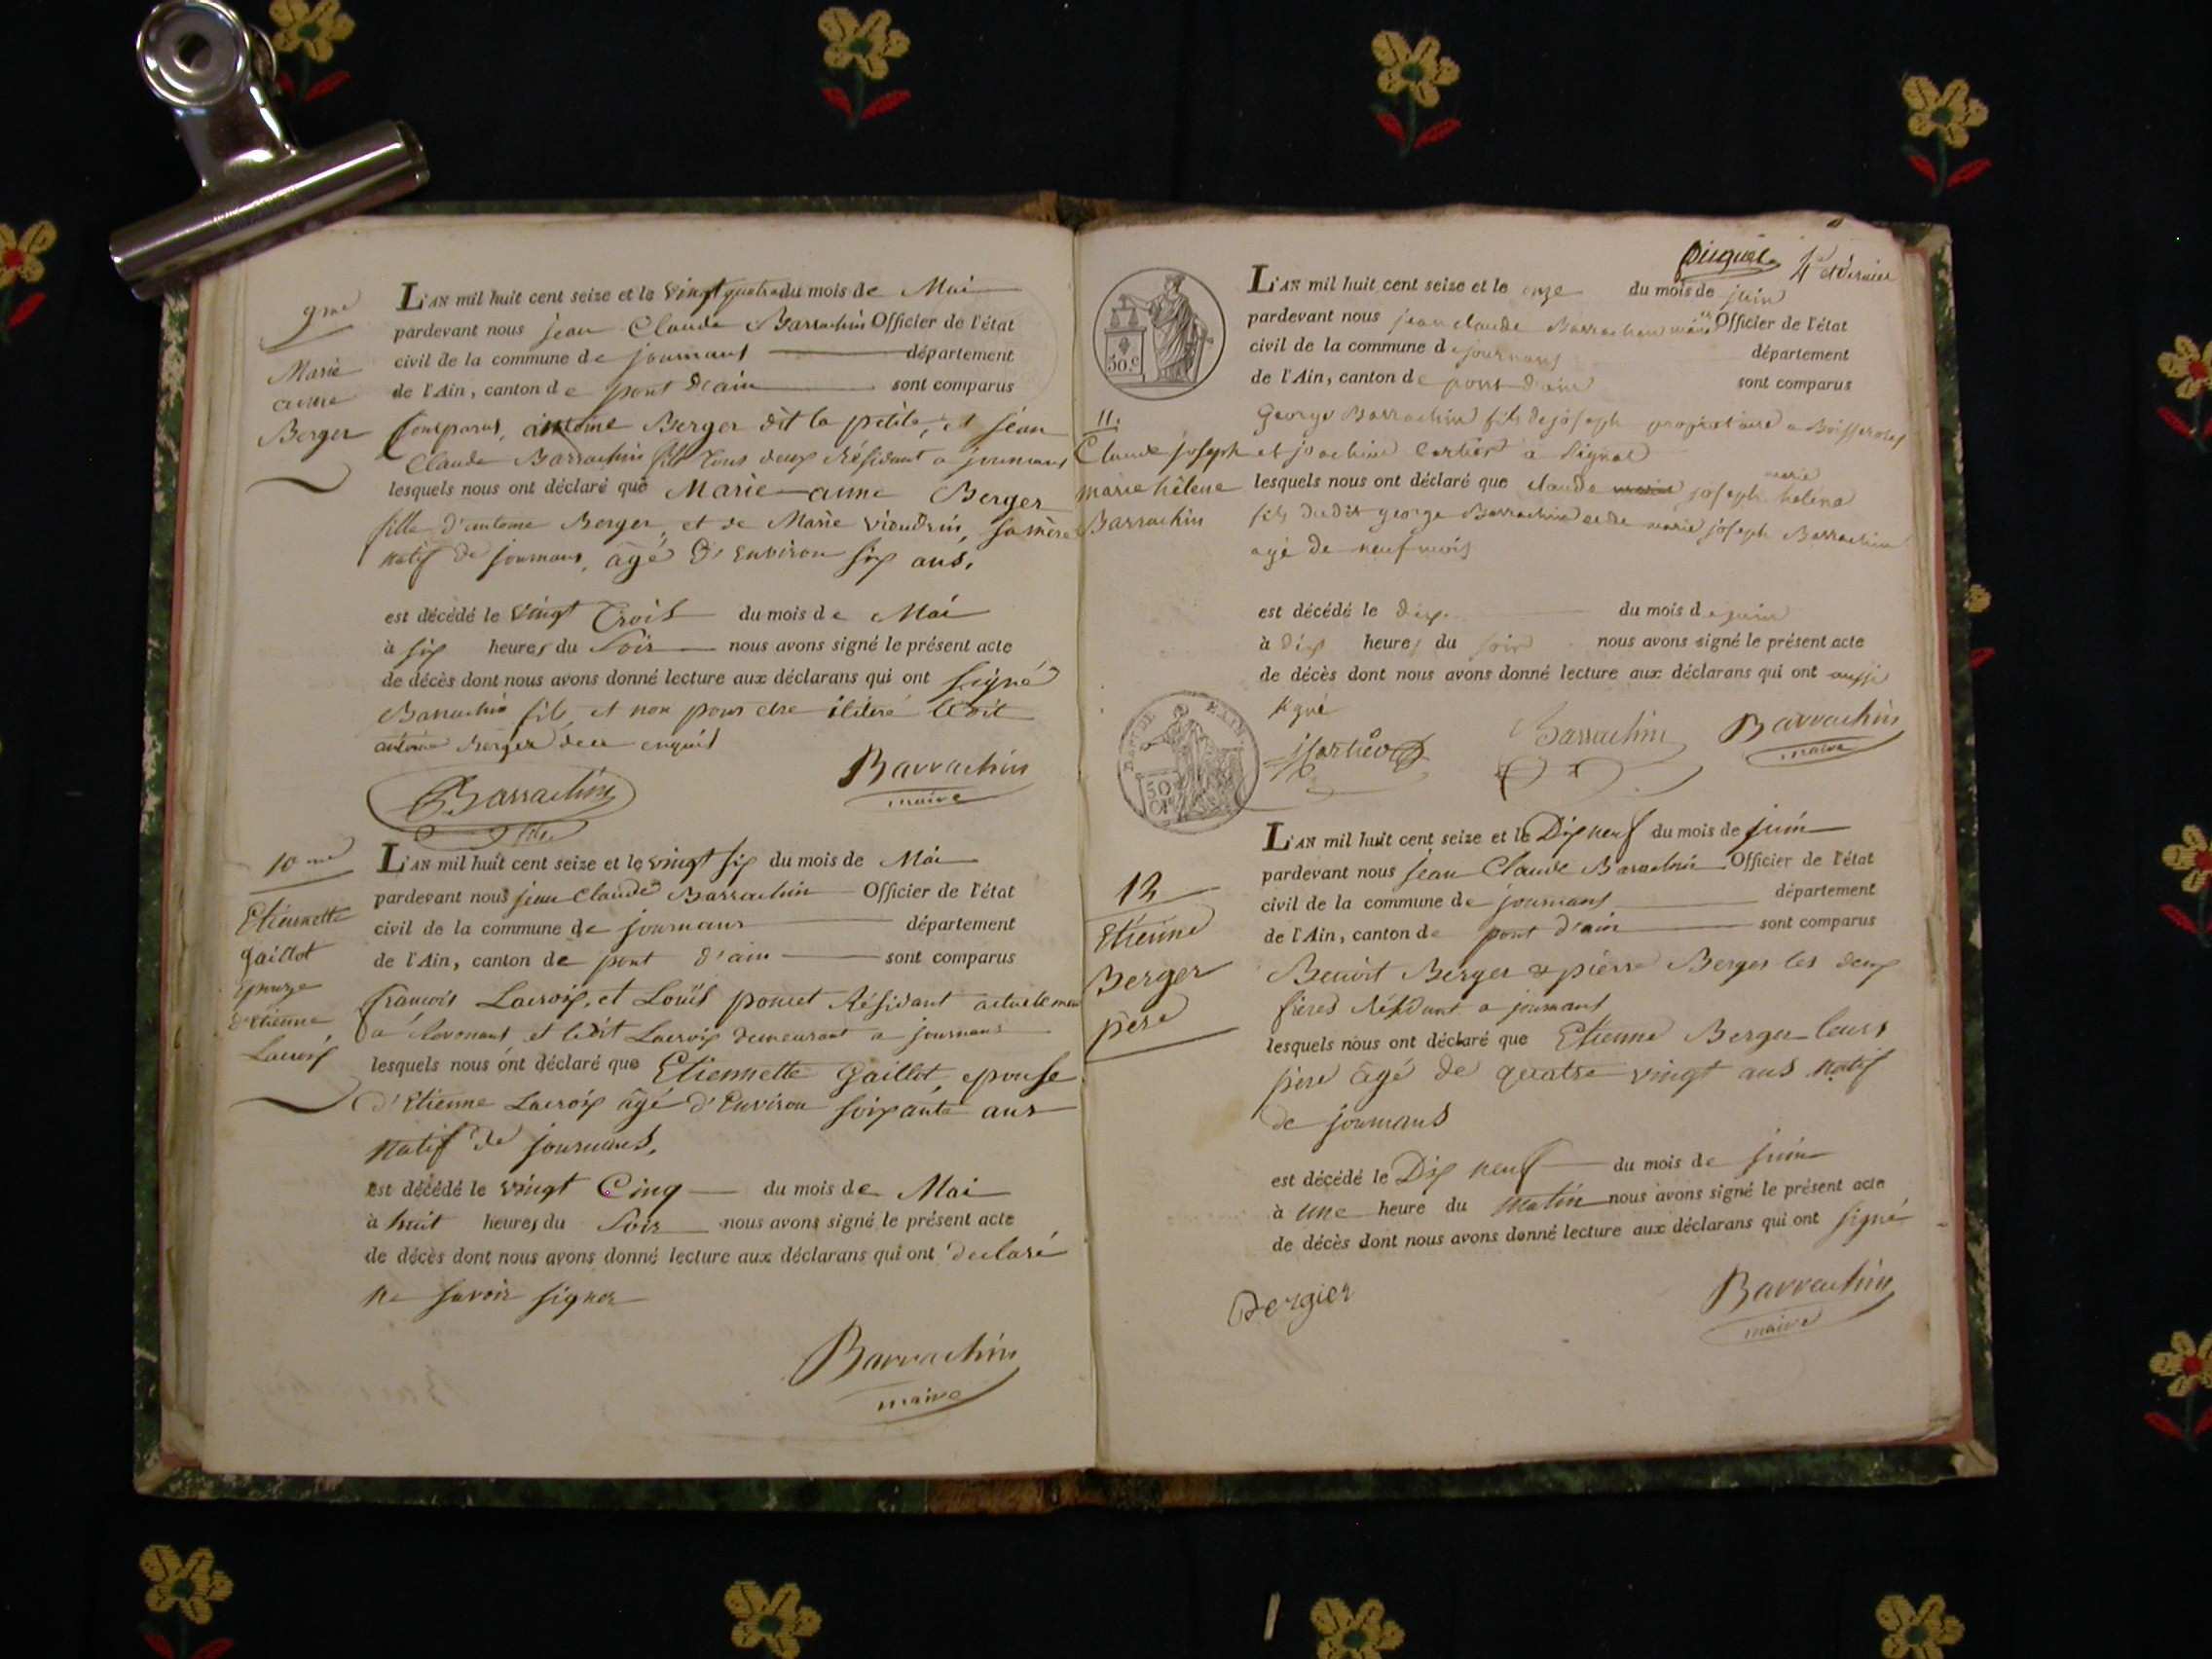 9me
Marie
anne
Berger
L'AN mil huit cent seize et le vingt quatre du mois de Mai
pardevant nous jean Claude Barrachin Officier de l'état
civil de la commune de journans département
de l'Ain, canton de pont d'ain sont comparus
Comparus, antoine Berger dit la petite, et jean
Claude Barrachin fils tous deux Résidant a journans
lesquels nous ont déclaré que Marie-anne Berger
fille d'antoine Berger, et de Marie vieudrin, sa mère
natif de journans, âgé d'Environ six ans,
est décédé le vingt Trois du mois de Mai
à six heures du soir nous avons signé le présent acte
de décès dont nous avons donné lecture aux déclarans qui ont signé
Barrachin fils, et non pour etre iliteré ledit
antoine Berger de ce enquis
Barrachin
fils
Barrachin
maire
10me
Etiennette
gaillot
epouze
d'Etienne
Lacroix
L'AN mil huit cent seize et le vingt six du mois de Mai
pardevant nous jean Claude Barrachin Officier de l'état
civil de la commune de journans département
de l'Ain, canton de pont d'ain sont comparus
françois Lacroix, et Louïs poncet Résidant actuelement
a Revonans et ledit Lacroix demeurant a journans
lesquels nous ont déclaré que Etiennette gaillot, epouse
d'Etienne Lacroix âgé d'Environ soixante ans
natif de journans,
est décédé le vingt Cinq du mois de Mai
à huit heures du soir nous avons signé le présent acte
de décès dont nous avons donné lecture aux déclarans qui ont declaré
ne savoir signer
Barrachin
maire
4e et dernier
50.c
L'AN mil huit cent seize et le onze du mois de juin
pardevant nous jean claude Barrachin maire Officier de l'état
civil de la commune de journans département
de l'Ain, canton de pont d'ain sont comparus
george Barrachin fils de joseph propriétaire a
et joachim Cartier a
11.
Claude joseph
marie hélene
Barrachin
lesquels nous ont déclaré que claude joseph marie helène
fils dudit george Barrachin et de marie joseph Barrachin
agé de neuf mois
est décédé le dix du mois de juin
à dix heures du soir nous avons signé le présent acte
de décès dont nous avons donné lecture aux déclarans qui ont aussi
signé
DEP. DE L'AIN
50
CES
Cartier
Barrachin
Barrachin
maire
12
Etienne
Berger
père
L'AN mil huit cent seize et le Dix neuf du mois de juin
pardevant nous jean Claude Barrachin Officier de l'état
civil de la commune de journans département
de l'Ain, canton de pont d'ain sont comparus
Benoit Berger & pierre Berger les deux
frères Résidant a journans
lesquels nous ont déclaré que Etienne Berger leurs
père âgé de quatre vingt ans natif
de journans
est décédé le Dix neuf du mois de juin
à une heure du matin nous avons signé le présent acte
de décès dont nous avons donné lecture aux déclarans qui ont signé
Bergier
Barrachin
maire